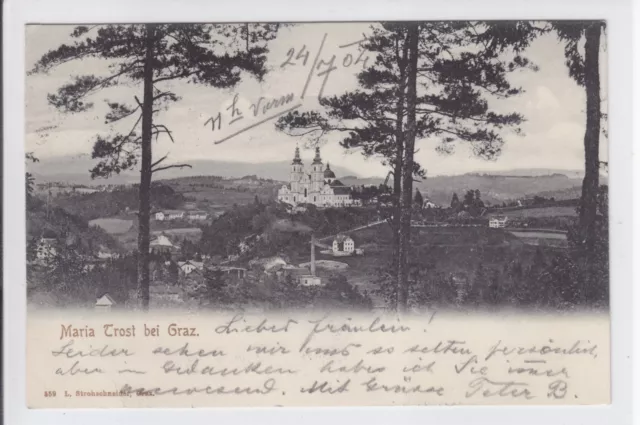 24/7 04
11h Vorm
Maria Trost bei Graz. Liebes Fräulein!
Leider sehen wir uns so selten persönlich,
aber in Gedanken habe ich Sie immer
Mit Grüsse Peter B.
559 L. Strohschneider, Graz.